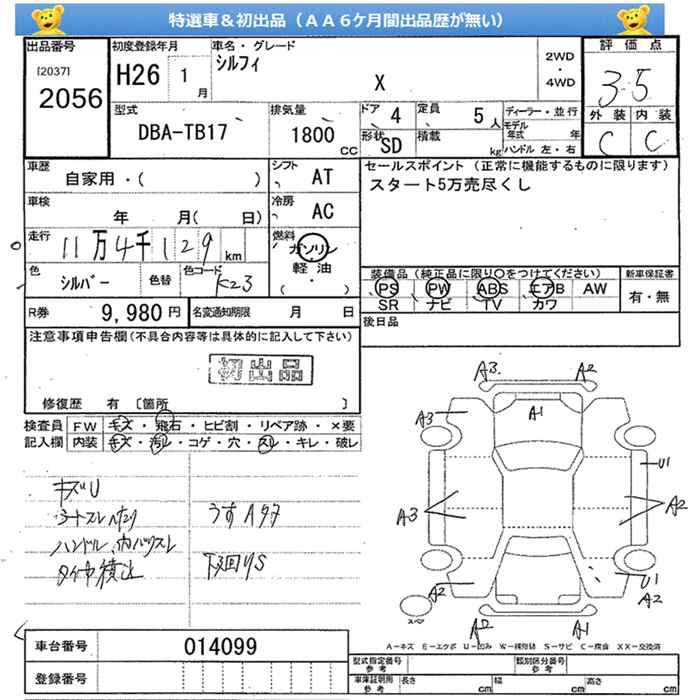 特選車＆初出品（ＡＡ６ケ月間出品歴が無い）
出品番号
[2037]
2056
初度登録年月
H26 1月
車名・グレード
シルフィ
X
2WD
・
4WD
評価点
3.5
外装 内装
C C
型式
DBA-TB17
排気量
1800 CC
ドア 4
定員 5人
形状 SD
積載 kg
ディーラー・並行
モデル年式 年
ハンドル 左・右
車歴
自家用・( )
シフト AT
車検
年 月( 日)
冷房 AC
走行
11万4千129 km
燃料
ガソリン
軽油
( ・ )
色
シルバー
色替
色コード
K23
R券 9,980円
名変通知期限 月 日
セールスポイント（正常に機能するものに限ります）
スタート5万売尽くし
装備品（純正品に限り○をつけてください）
PS PW ABS エアB AW
SR ナビ TV カワ
新車保証書
有・無
後日品
注意事項申告欄（不具合内容等は具体的に記入して下さい）
初出品
修復歴 有 〔箇所 〕
検査員記入欄
FW キズ・飛石・ヒビ割・リペア跡・×要
内装 キズ・汚レ・コゲ・穴・スレ・キレ・破レ
キズU
うすAタナ
ハンドル、内バリスレ
下回りS
A3 A2
A3 A1
U1
A3 A2
A2 U1
A2
スペア
A2 A1
A－キズ E－エクボ U－凹み W－補修跡 S－サビ C－腐食 XX－交換済
車台番号 014099
登録番号
型式指定番号 参考
類別区分番号 参考
車庫証明用 参考
長さ cm 幅 cm 高さ cm